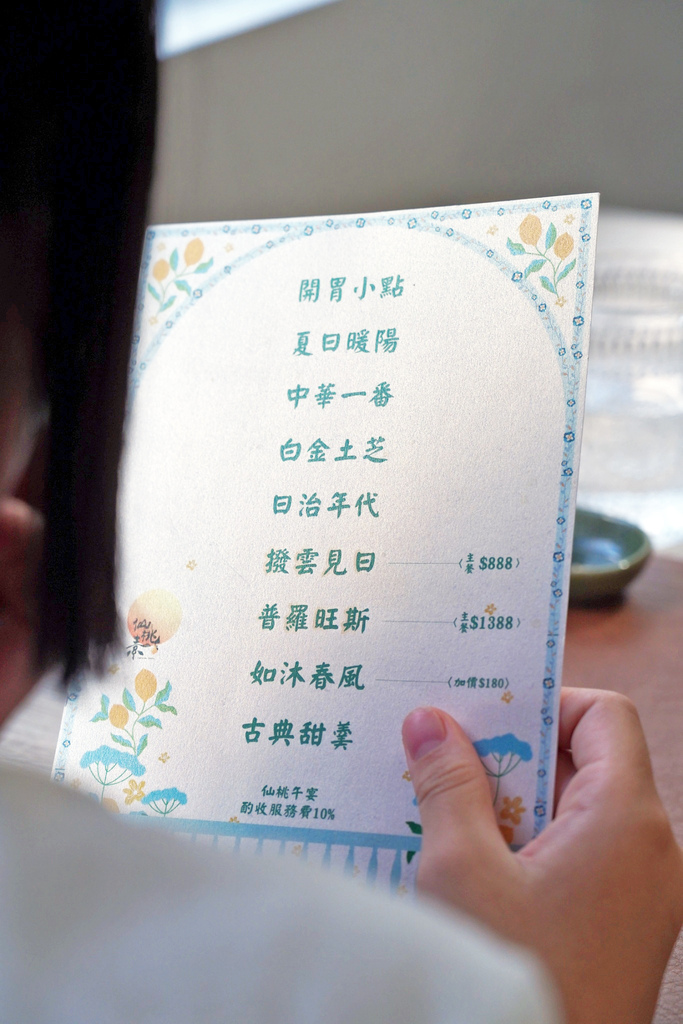 開胃小點
夏日暖陽
中華一番
白金土芝
日治年代
撥雲見日〈主餐 $888〉
普羅旺斯〈主餐 $1388〉
如沐春風〈加價$180〉
古典甜羹
仙桃午宴
酌收服務費10%
仙桃
素